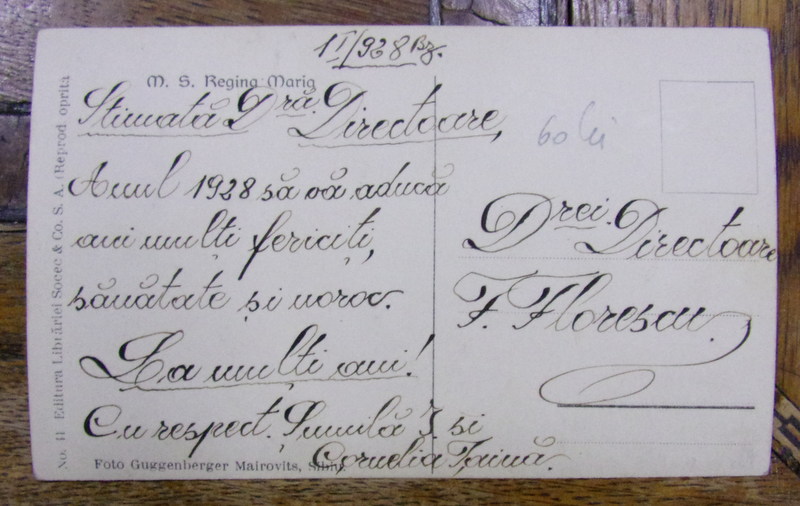 1 I/928 Bz.
M. S. Regina Maria
Stimată D.ră Directoare,
Anul 1928 să vă aducă
ani mulți fericiți,
sănătate și noroc.
La mulți ani!
Cu respect. I. și
Cornelia
Foto Guggenberger Mairovits, Sibiu
No. 11 Editura Librăriei Socec & Co. S. A. (Reprod. oprita
60 lei
D.rei Directoare
F. Florescu.